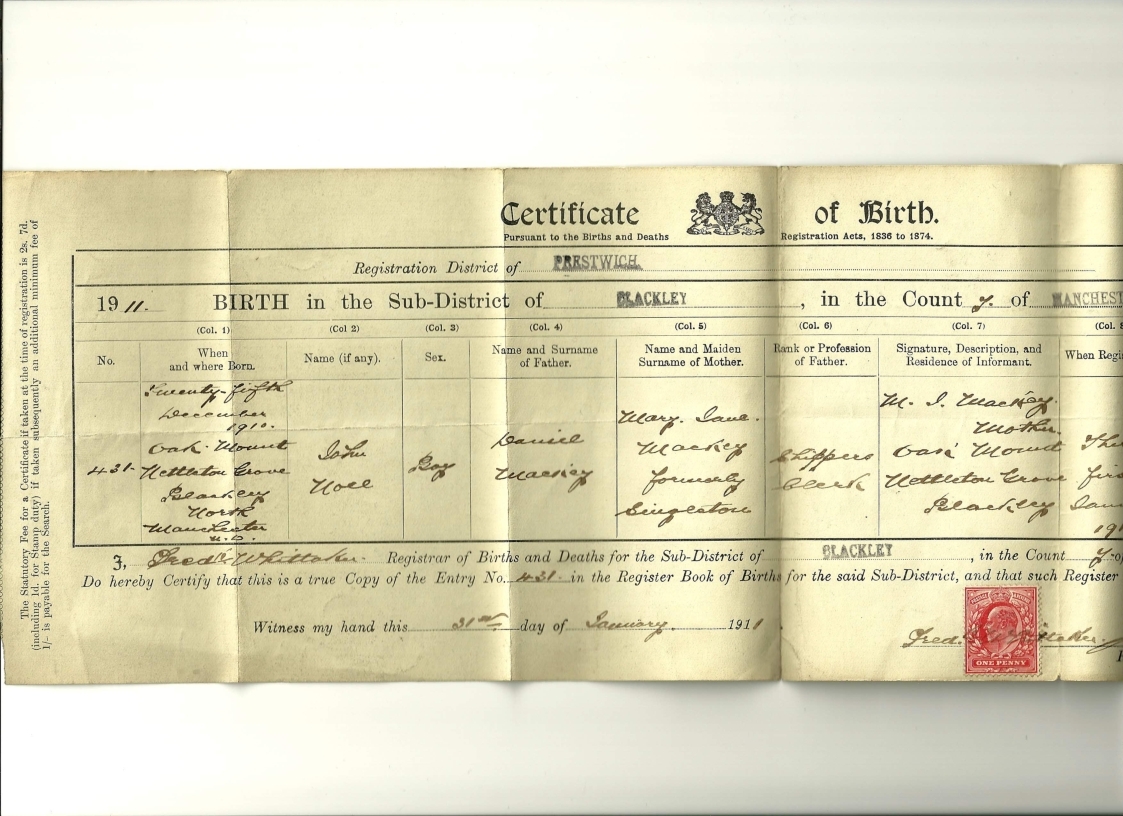 Certificate of Birth.
Pursuant to the Births and Deaths Registration Acts, 1836 to 1874.
Registration District of PRESTWICH
1911. BIRTH in the Sub-District of BLACKLEY, in the County of MANCHEST
(Col. 1) (Col 2) (Col. 3) (Col. 4) (Col. 5) (Col. 6) (Col. 7) (Col. 8
No.
When
and where Born.
Name (if any).
Sex.
Name and Surname
of Father.
Name and Maiden
Surname of Mother.
Rank or Profession
of Father.
Signature, Description, and
Residence of Informant.
When Regi
431.
Twenty-fifth
December
1910.
Oak Mount
Nettleton Grove
Blackley
North
Manchester
U.D.
John
Noel
Boy
Daniel
Mackey
Mary Jane.
Mackey
formerly
Singleton
Shippers
Clerk
M. J. Mackey.
Mother.
Oak Mount
Nettleton Grove
Blackley
Thi
firs
Janu
191
I, Fredk Whittaker. Registrar of Births and Deaths for the Sub-District of BLACKLEY, in the County of
Do hereby Certify that this is a true Copy of the Entry No. 431. in the Register Book of Births for the said Sub-District, and that such Register
Witness my hand this 31st day of January. 1911.
Fred. Whittaker.
ONE PENNY
The Statutory Fee for a Certificate if taken at the time of registration is 2s. 7d.
(including 1d. for Stamp duty) if taken subsequently an additional minimum fee of
1/- is payable for the Search.